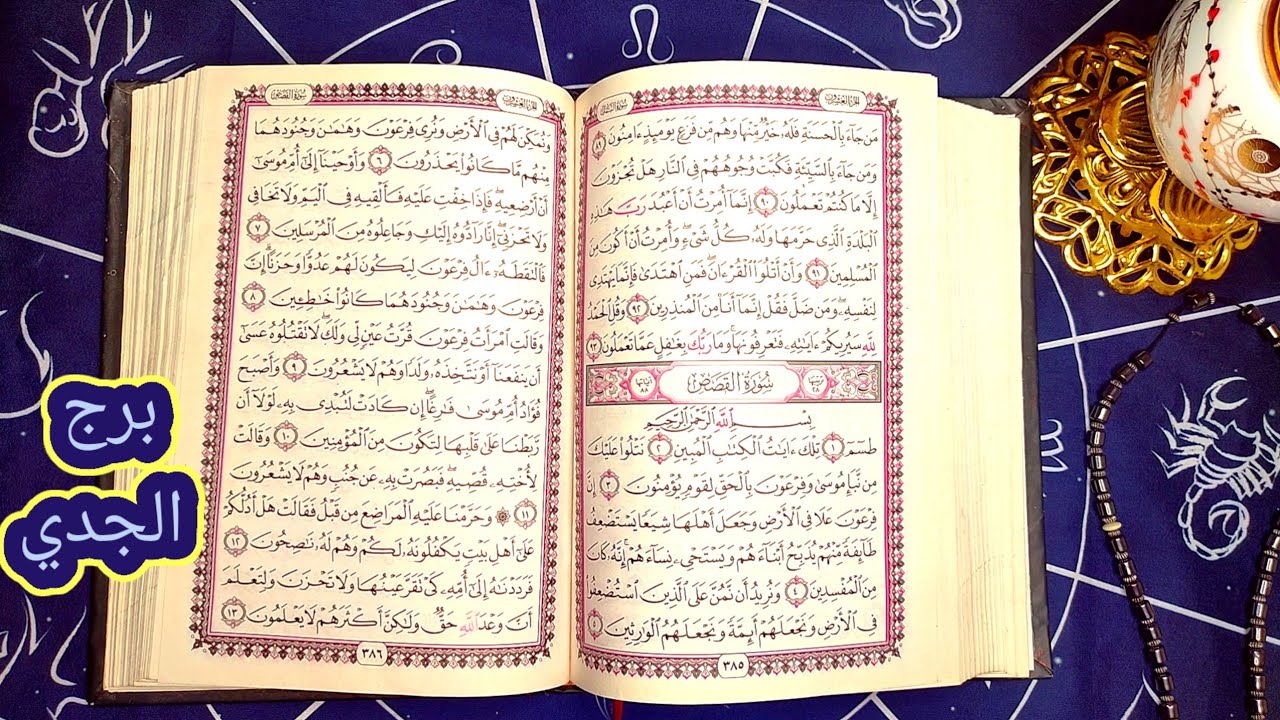 سورة النمل
الجزء العشرون
مَن جَآءَ بِالْحَسَنَةِ فَلَهُۥ خَيْرٌ مِّنْهَا وَهُم مِّن فَزَعٍ يَوْمَئِذٍ ءَامِنُونَ ٨٩
وَمَن جَآءَ بِالسَّيِّئَةِ فَكُبَّتْ وُجُوهُهُمْ فِي النَّارِ هَلْ تُجْزَوْنَ
إِلَّا مَا كُنتُمْ تَعْمَلُونَ ٩٠ إِنَّمَآ أُمِرْتُ أَنْ أَعْبُدَ رَبَّ هَٰذِهِ
الْبَلْدَةِ الَّذِي حَرَّمَهَا وَلَهُۥ كُلُّ شَيْءٍ وَأُمِرْتُ أَنْ أَكُونَ مِنَ
الْمُسْلِمِينَ ٩١ وَأَنْ أَتْلُوَا۟ الْقُرْءَانَ فَمَنِ اهْتَدَىٰ فَإِنَّمَا يَهْتَدِي
لِنَفْسِهِۦ وَمَن ضَلَّ فَقُلْ إِنَّمَآ أَنَا۠ مِنَ الْمُنذِرِينَ ٩٢ وَقُلِ الْحَمْدُ
لِلَّهِ سَيُرِيكُمْ ءَايَٰتِهِۦ فَتَعْرِفُونَهَا وَمَا رَبُّكَ بِغَٰفِلٍ عَمَّا تَعْمَلُونَ ٩٣
ترتيبها ٢٨ سُورَةُ الْقَصَصِ آياتها ٨٨
بِسْمِ اللَّهِ الرَّحْمَٰنِ الرَّحِيمِ
طسٓمٓ ١ تِلْكَ ءَايَٰتُ الْكِتَٰبِ الْمُبِينِ ٢ نَتْلُوا۟ عَلَيْكَ
مِن نَّبَإِ مُوسَىٰ وَفِرْعَوْنَ بِالْحَقِّ لِقَوْمٍ يُؤْمِنُونَ ٣ إِنَّ
فِرْعَوْنَ عَلَا فِي الْأَرْضِ وَجَعَلَ أَهْلَهَا شِيَعًا يَسْتَضْعِفُ
طَآئِفَةً مِّنْهُمْ يُذَبِّحُ أَبْنَآءَهُمْ وَيَسْتَحْيِۦ نِسَآءَهُمْ إِنَّهُۥ كَانَ
مِنَ الْمُفْسِدِينَ ٤ وَنُرِيدُ أَن نَّمُنَّ عَلَى الَّذِينَ اسْتُضْعِفُوا۟
فِي الْأَرْضِ وَنَجْعَلَهُمْ أَئِمَّةً وَنَجْعَلَهُمُ الْوَٰرِثِينَ ٥
٣٨٥
الجزء العشرون
سورة القصص
وَنُمَكِّنَ لَهُمْ فِي الْأَرْضِ وَنُرِيَ فِرْعَوْنَ وَهَٰمَٰنَ وَجُنُودَهُمَا
مِنْهُم مَّا كَانُوا۟ يَحْذَرُونَ ٦ وَأَوْحَيْنَآ إِلَىٰٓ أُمِّ مُوسَىٰٓ
أَنْ أَرْضِعِيهِ فَإِذَا خِفْتِ عَلَيْهِ فَأَلْقِيهِ فِي الْيَمِّ وَلَا تَخَافِي
وَلَا تَحْزَنِيٓ إِنَّا رَآدُّوهُ إِلَيْكِ وَجَاعِلُوهُ مِنَ الْمُرْسَلِينَ ٧
فَالْتَقَطَهُۥٓ ءَالُ فِرْعَوْنَ لِيَكُونَ لَهُمْ عَدُوًّا وَحَزَنًا إِنَّ
فِرْعَوْنَ وَهَٰمَٰنَ وَجُنُودَهُمَا كَانُوا۟ خَٰطِـِٔينَ ٨
وَقَالَتِ امْرَأَتُ فِرْعَوْنَ قُرَّتُ عَيْنٍ لِّي وَلَكَ لَا تَقْتُلُوهُ عَسَىٰٓ
أَن يَنفَعَنَآ أَوْ نَتَّخِذَهُۥ وَلَدًا وَهُمْ لَا يَشْعُرُونَ ٩ وَأَصْبَحَ
فُؤَادُ أُمِّ مُوسَىٰ فَٰرِغًا إِن كَادَتْ لَتُبْدِي بِهِۦ لَوْلَآ أَن
رَّبَطْنَا عَلَىٰ قَلْبِهَا لِتَكُونَ مِنَ الْمُؤْمِنِينَ ١٠ وَقَالَتْ
لِأُخْتِهِۦ قُصِّيهِ فَبَصُرَتْ بِهِۦ عَن جُنُبٍ وَهُمْ لَا يَشْعُرُونَ
١١ ۞ وَحَرَّمْنَا عَلَيْهِ الْمَرَاضِعَ مِن قَبْلُ فَقَالَتْ هَلْ أَدُلُّكُمْ
عَلَىٰٓ أَهْلِ بَيْتٍ يَكْفُلُونَهُۥ لَكُمْ وَهُمْ لَهُۥ نَٰصِحُونَ ١٢
فَرَدَدْنَٰهُ إِلَىٰٓ أُمِّهِۦ كَيْ تَقَرَّ عَيْنُهَا وَلَا تَحْزَنَ وَلِتَعْلَمَ
أَنَّ وَعْدَ اللَّهِ حَقٌّ وَلَٰكِنَّ أَكْثَرَهُمْ لَا يَعْلَمُونَ ١٣
٣٨٦
برج
الجدي